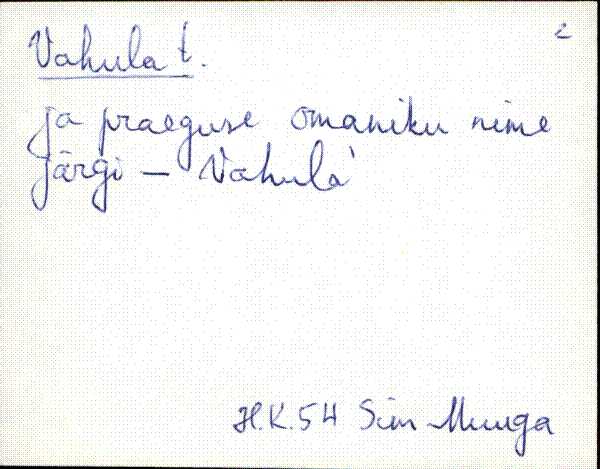 2
Vahula t.
ja praeguse omaniku nime
järgi – Vahula
H.K.54 Sim Muuga